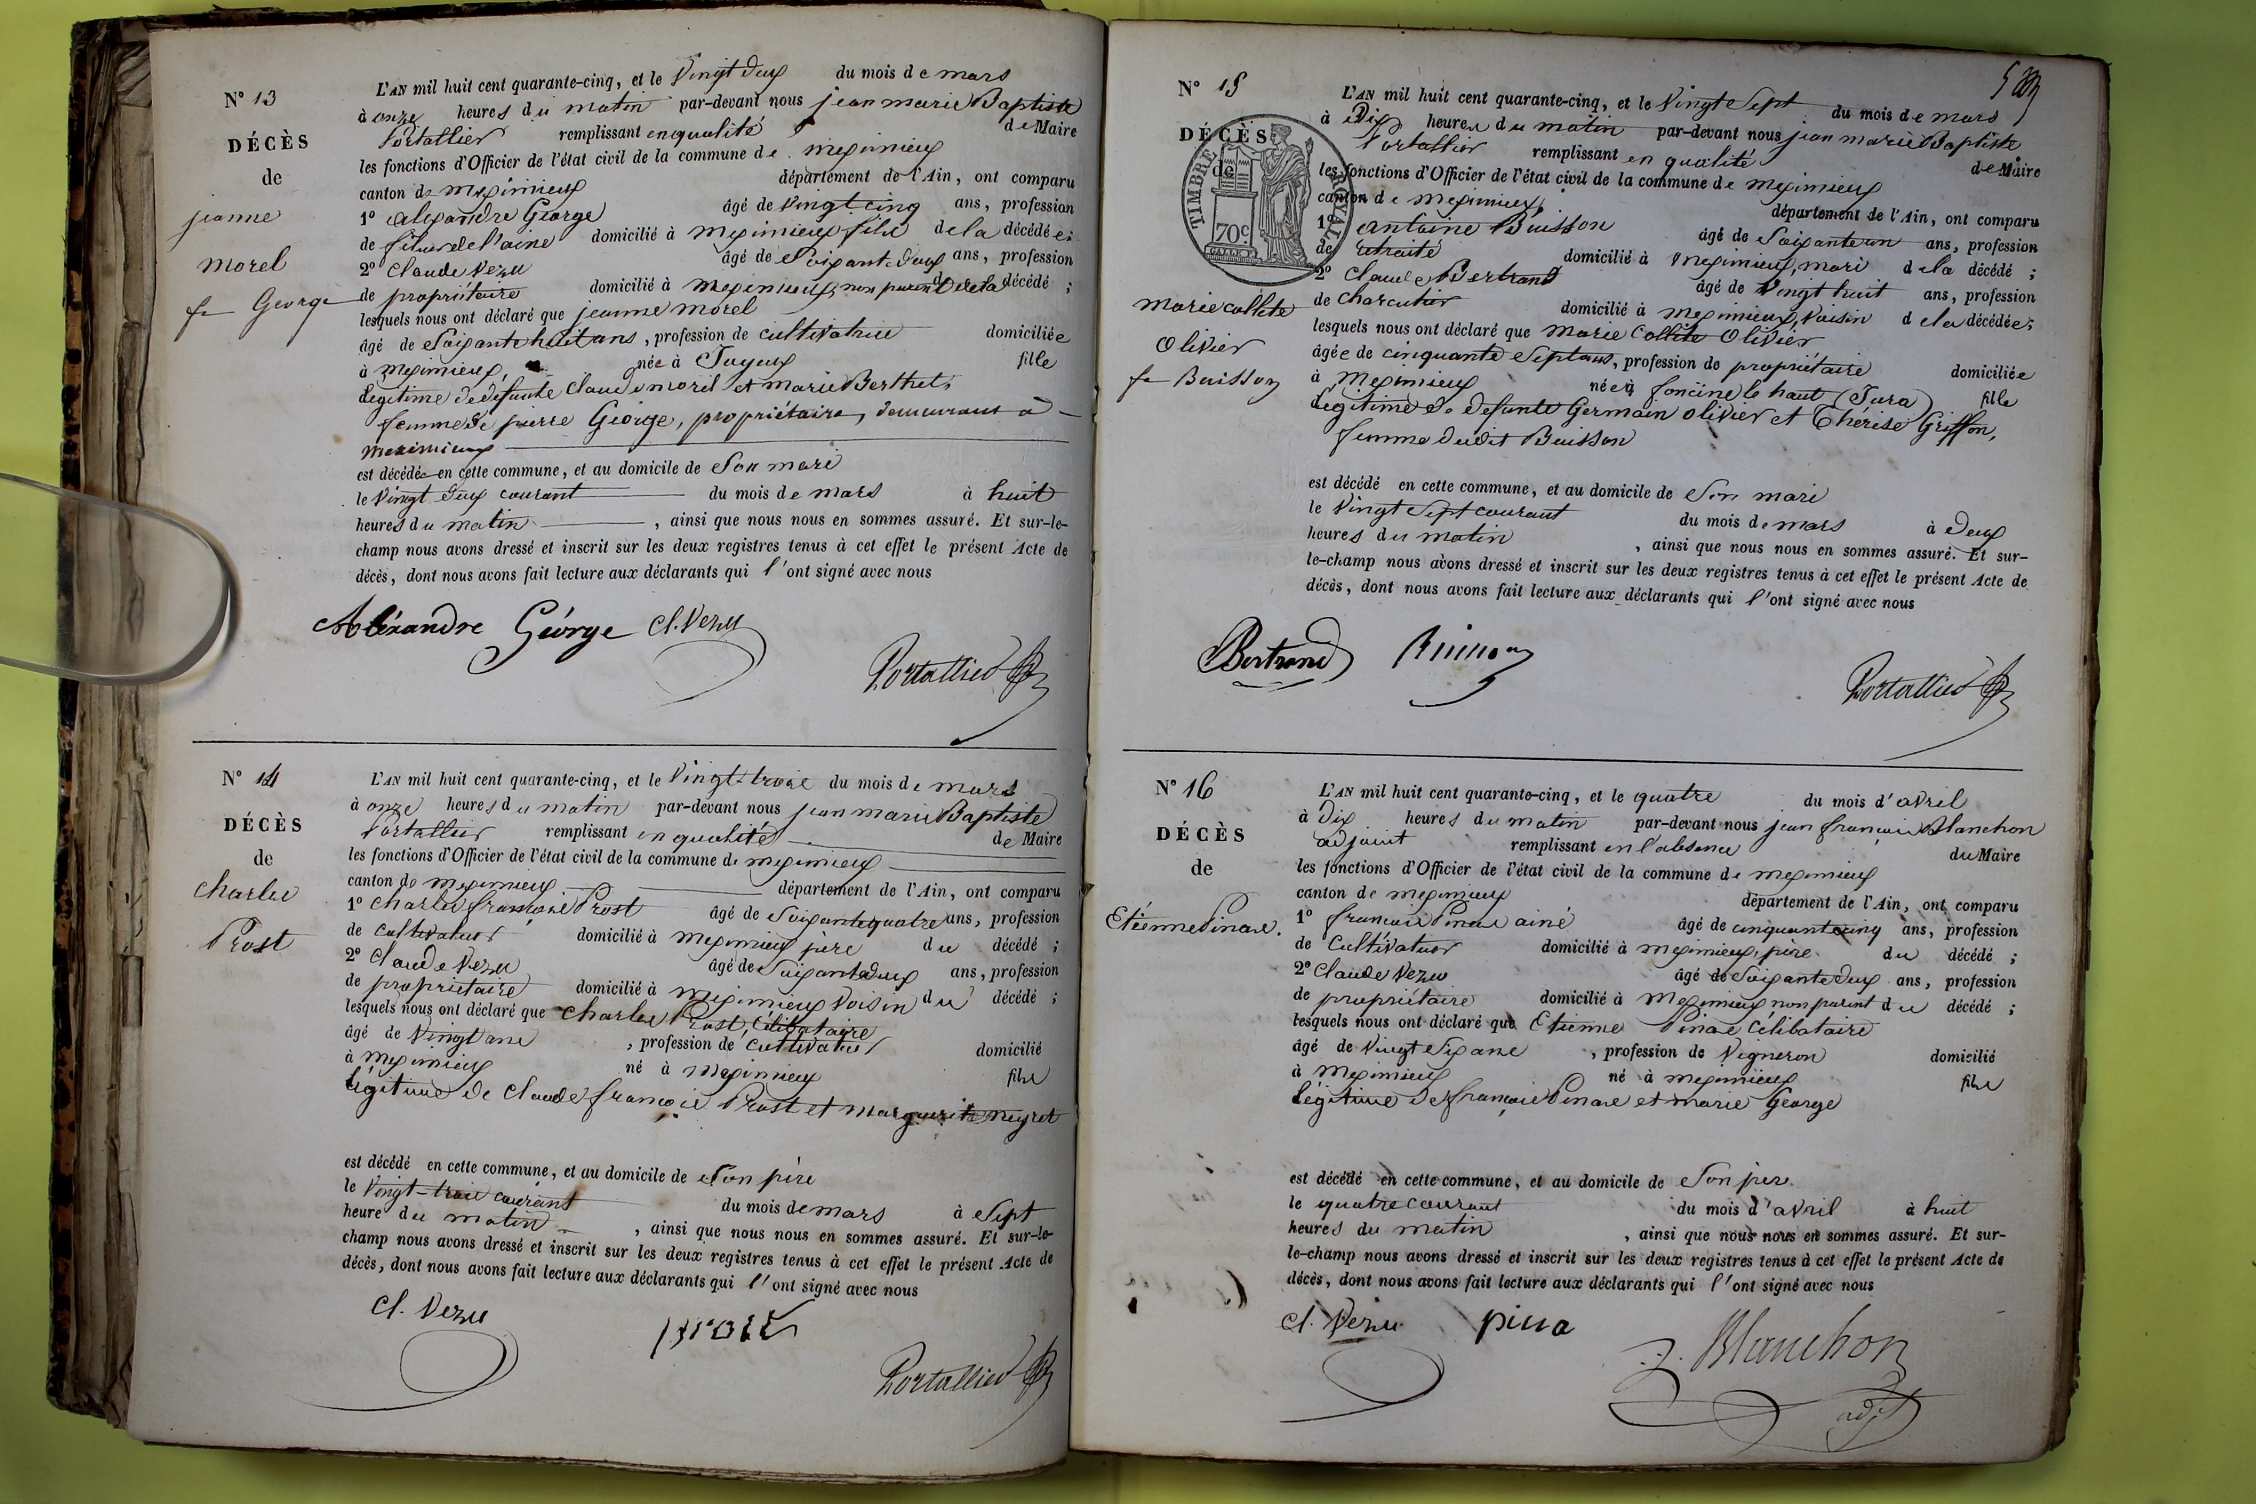 N° 13
DÉCÈS
de
jeanne
morel
fe George
L'AN mil huit cent quarante-cinq, et le Vingt deux du mois de mars
à onze heures du matin par-devant nous jean marie Baptiste
Portallier remplissant en qualité de Maire
les fonctions d'Officier de l'état civil de la commune de meximieux
canton de meximieux département de l'Ain, ont comparu
1° alexandre George âgé de Vingt cinq ans, profession
de fileur de laine domicilié à meximieux fils de la décédée;
2° Claude Vezu âgé de Soixante deux ans, profession
de propriétaire domicilié à meximieux, non parent de la décédé;
lesquels nous ont déclaré que jeanne morel
âgé de Soixante huit ans, profession de cultivatrice domiciliée
à meximieux, née à Joyeux fille
légitime de defunts Claude morel et marie Berthet,
femme de pierre George, propriétaire, demeurant à
meximieux
est décédée en cette commune, et au domicile de Son mari
le Vingt deux courant du mois de mars à huit
heures du matin, ainsi que nous nous en sommes assuré. Et sur-le-
champ nous avons dressé et inscrit sur les deux registres tenus à cet effet le présent Acte de
décès, dont nous avons fait lecture aux déclarants qui l'ont signé avec nous
Aléxandre Géorge Cl. Vezu
Portallier
N° 14
DÉCÈS
de
Charles
Prost
L'AN mil huit cent quarante-cinq, et le Vingt-trois du mois de mars
à onze heures du matin par-devant nous jean marie Baptiste
Portallier remplissant en qualité de Maire
les fonctions d'Officier de l'état civil de la commune de meximieux
canton de meximieux département de l'Ain, ont comparu
1° Charles françois Prost âgé de Soixante quatre ans, profession
de cultivateur domicilié à meximieux père du décédé;
2° Claude Vezu âgé de Soixante deux ans, profession
de propriétaire domicilié à meximieux Voisin du décédé;
lesquels nous ont déclaré que Charles Prost, célibataire
âgé de Vingt ans, profession de cultivateur domicilié
à meximieux né à meximieux fils
légitime de Claude françois Prost et marguerite neyret
est décédé en cette commune, et au domicile de Son père
le Vingt-trois courant du mois de mars à Sept
heure du matin, ainsi que nous nous en sommes assuré. Et sur-le-
champ nous avons dressé et inscrit sur les deux registres tenus à cet effet le présent Acte de
décès, dont nous avons fait lecture aux déclarants qui l'ont signé avec nous
Cl. Vezu prost
Portallier
N° 15
DÉCÈS
de
TIMBRE ROYAL
70c
marie collete
Olivier
fe Buisson
L'AN mil huit cent quarante-cinq, et le Vingt Sept du mois de mars
à Dix heures du matin par-devant nous jean marie Baptiste
Portallier remplissant en qualité de Maire
les fonctions d'Officier de l'état civil de la commune de meximieux
canton de meximieux département de l'Ain, ont comparu
1° antoine Buisson âgé de Soixante un ans, profession
de retraité domicilié à meximieux, mari de la décédé;
2° Claude Bertrand âgé de Vingt huit ans, profession
de charcutier domicilié à meximieux, Voisin de la décédée;
lesquels nous ont déclaré que marie Collete Olivier
âgée de cinquante Sept ans, profession de propriétaire domiciliée
à meximieux née à foncine le haut (Jura) fille
légitime de defunts Germain olivier et Thérèse Griffon,
femme dudit Buisson
est décédé en cette commune, et au domicile de Son mari
le Vingt Sept courant du mois de mars à deux
heures du matin, ainsi que nous nous en sommes assuré. Et sur-
le-champ nous avons dressé et inscrit sur les deux registres tenus à cet effet le présent Acte de
décès, dont nous avons fait lecture aux déclarants qui l'ont signé avec nous
Bertrand
Portallier
N° 16
DÉCÈS
de
Etienne Pinae.
L'AN mil huit cent quarante-cinq, et le quatre du mois d'avril
à Dix heures du matin par-devant nous jean françois Blanchon
adjoint remplissant en l'absence du Maire
les fonctions d'Officier de l'état civil de la commune de meximieux
canton de meximieux département de l'Ain, ont comparu
1° françois Pinae ainé âgé de cinquante cinq ans, profession
de Cultivateur domicilié à meximieux, père du décédé;
2° Claude Vezu âgé de Soixante deux ans, profession
de propriétaire domicilié à meximieux non parent du décédé;
lesquels nous ont déclaré que Etienne Pinae Célibataire
âgé de Vingt Six ans, profession de Vigneron domicilié
à meximieux né à meximieux fils
légitime de françois Pinae et marie George
est décédé en cette commune, et au domicile de Son père
le quatre courant du mois d'avril à huit
heures du matin, ainsi que nous nous en sommes assuré. Et sur-
le-champ nous avons dressé et inscrit sur les deux registres tenus à cet effet le présent Acte de
décès, dont nous avons fait lecture aux déclarants qui l'ont signé avec nous
Cl. Vezu pina
J. Blanchon
adjt